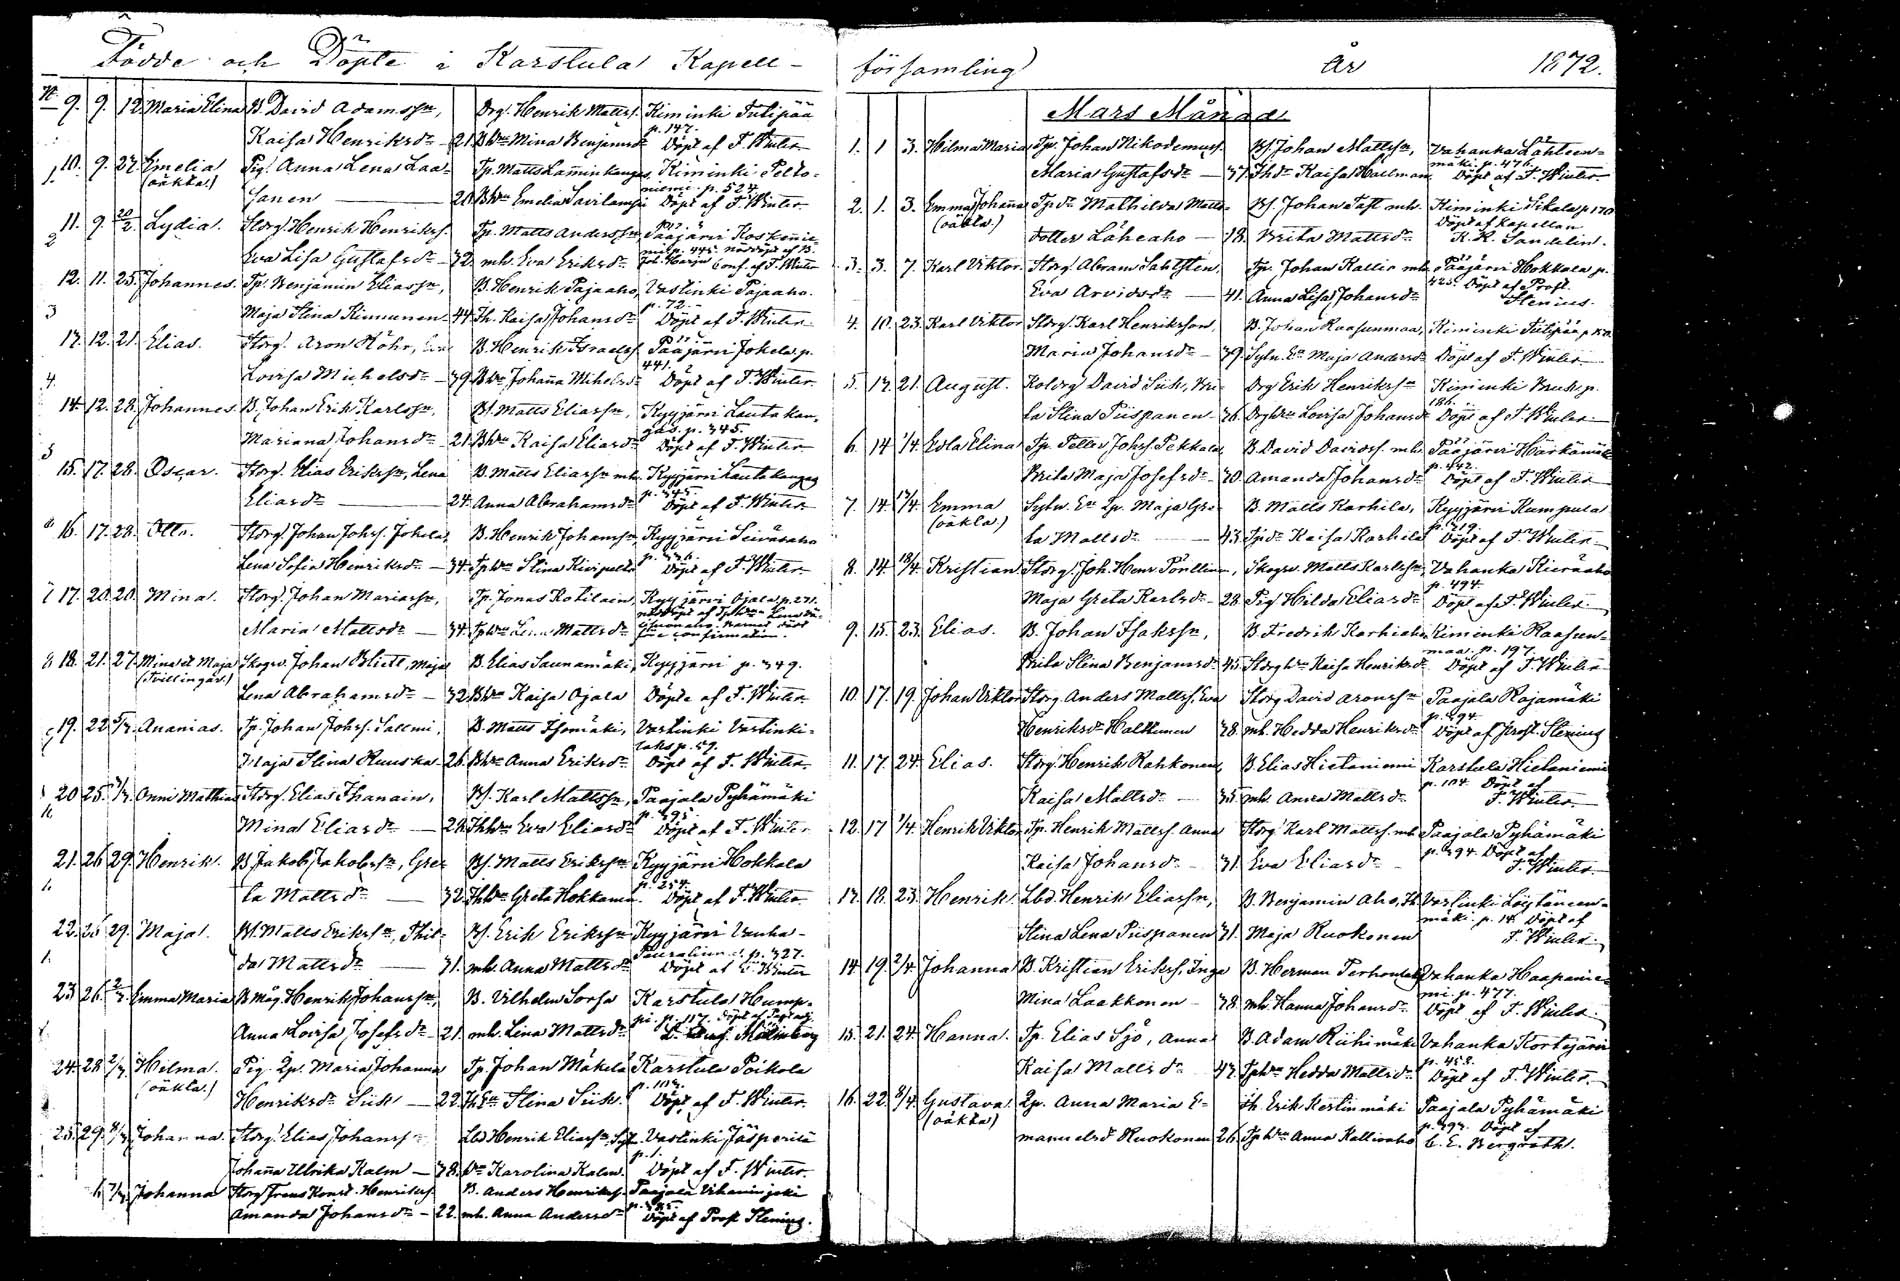 Födde och Döpte i Karstula Kapell-
N
9. 9. 12. Maria Elina B. David Adamss:n, Drg. Henrik Mattss. Kiminki Tulipää
p. 147.
Kaisa Henriksd:r — 21. Bh:n Mina Benjamsd:r Döpt af F. Winter
10. 9. 27. Emelia Pig. Anna Lena Laa- Tp. Matts Laminkangas, Kiminki Pelto-
(oäkta) niemi p. 524.
sanen — 20. Bh:n Emelia Savilampi Döpt af F. Winter
11. 9. 20/2 Lydia. Storg. Henrik Henrikss. Tp. Matts Anderss:n Pääjärvi Koskenie-
mi p. 445. nöddöpt af B.
Eva Lisa Gustafsd:r — 32. mh. Eva Eriksd:r Joh. Harju Conf. af F. Winter
12. 11. 25. Johannes. Tp. Benjamin Eliass:n, B. Henrik Pajaaho, Vastinki Pajaaho.
p. 72.
Maja Stina Kinnunen — 44. Ih. Kaisa Johansd:r Döpt af F. Winter
13. 12. 21. Elias. Storg. Aron Röhr, B. Henrik Israelss. Pääjärvi Jokela p.
441.
Lovisa Michelsd:r — 39. Bh:n Johanna Mihelsd:r Döpt af F. Winter.
14. 12. 28. Johannes. B. Johan Erik Karlss:n, Bs. Matts Eliass:n, Kyyjärvi Lautakan-
gas. p. 345.
Mariana Johansd:r — 21. Bh:n Kaisa Eliasd:r Döpt af F. Winter
15. 17. 28. Oscar. Storg. Elias Erikss:n, Lena B. Matts Eliass:n mh. Kyyjärvi Lautakangas
p. 345.
Eliasd:r — 24. Anna Abrahamsd:r Döpt af F. Winter
16. 17. 28. Otto. Storg. Johan Johss. Jokela, B. Henrik Johanss:n, Kyyjärvi Seiväsaho
p. 336.
Lena Sofia Henriksd:r — 34. Tph:n Stina Kivipelto Döpt af F. Winter
17. 20. 20. Mina. Storg. Johan Mariass:n, Tp. Jonas Kotilain, Kyyjärvi Ojala p. 271.
Maria Mattsd:r — 34. Tph:n Lena Mattsd:r före confirmation.
18. 21. 27. Mina & Maja Skogsv. Johan Bliek, Maja B. Elias Saunamäki, Kyyjärvi p. 349.
(Tvillingar)
Lena Abrahamsd:r — 32. Bh:n Kaisa Ojala Döpte af F. Winter
19. 22. 5/3. Ananias. Tp. Johan Johss. Salmi, B. Matts Isomäki, Vastinki Vastinki-
laks p. 59.
Maja Stina Ruuska 26. Bh:n Anna Eriksd:r Döpt af F. Winter
20. 25. 3/3. Onni Mathias Storg. Elias Ihanain, Bs. Karl Mattss:n, Paajala Pyhämäki
p. 395.
Mina Eliasd:r — 28. Ihh:n Eva Eliasd:r Döpt af F. Winter
21. 26. 29. Henrik. B. Jakob Jakobss:n, Gre- Bs. Matts Erikss:n Kyyjärvi Hokkala
p. 254.
ta Mattsd:r — 32. Ihh:n Greta Hokkanen. Döpt af F. Winter
22. 25. 29. Maja. Bs. Matts Erikss:n, Thil- Bs. Erik Erikss:n Kyyjärvi Vanha-
p. 327.
da Mattsd:r — 31. mh. Anna Mattsd:r Döpt af F. Winter
23. 26. 2/3. Emma Maria B. Måg. Henrik Johanss:n, B. Vilhelm Sorsa Karstula Hump-
pi. p. 117. Döpt af
Anna Lovisa Josefsd:r — 21. mh. Lina Mattsd:r
24. 28. 2/3. Hilma. Pig. Qp. Maria Johanna Tp. Johan Mäkelä Karstula Poikola
(oäkta.) p. 113.
Henriksd:r Siik — 22. Stina Siik. Döpt af F. Winter
25. 29. 8/3. Johanna. Storg. Elias Johanss:n Lbd Henrik Eliass:n, Vastinki Jäsperilä
p. 1.
Johanna Ulrika Kalm — 38. Karolina Kalm. Döpt af F. Winter.
Johanna Storg Frans Konst. Henrikss. B. Anders Henrikss. Paajala
Amanda Johansd:r — 22. mh. Anna Andersd:r Döpt af Prost Stenius.
församling år 1872.
Mars Månad
1. 1 3. Hilma Maria Tp. Johan Nikodemuss. Bs. Johan Mattss:n, Vahanka Lähteen-
mäki p. 476.
Maria Gustafsd:r — 37. Ihd:r Kaisa Hallman Döpt af F. Winter
2. 1. 3. Emma Johana Tpd:r Mathilda Matts- Bs. Johan Taft mh. Kiminki Sikala p. 170
(oäkta.) Döpt af Kapellan
dotter Låheaho — 18. Brita Mattsd:r K. K. Sandelin.
3. 3. 7. Karl Viktor. Storg. Abram Sahlsten, Tp. Johan Kallio mh. Pääjärvi Hokkala p.
425. Döpt af Prost.
Eva Arvidsd:r — 41. Anna Lisa Johansd:r Stenius.
4. 10. 23. Karl Viktor Storg. Karl Henriksson, B. Johan Raasunmaa, Kiminki Tulipää p. 150.
Maria Johansd:r — 39. Sytn. E:a Maja Andersd:r Döpt af F. Winter
5. 13. 21. August. Koldrg David Siik, Bri- Drg Erik Henrikss:n Kiminki Bruk p.
186.
ta Stina Piispanen — 36. Drgh:n Lovisa Johansd:r Döpt af F. Winter
6. 14 1/4. Edla Elina Tp. Petter Johss. Pekkala, B. David Davidss. mh. Pääjärvi Härkämäki
p. 442.
Brita Maja Josefsd:r — 30. Amanda Johansd:r Döpt af F. Winter
7. 14. 17/4. Emma Sytn. E:a Qp. Maja Gre- B. Matts Karhila, Kyyjärvi Kumpula
(oäkta.) p. 319.
ta Mattsd:r — 43. Tpd:r Kaisa Karhila Döpt af F. Winter
8. 14. 18/4. Kristian Storg. Joh. Henr. Pöntinen, Skogsv. Matts Karlss:n, Vahanka Kieräaho
p. 494.
Maja Greta Karlsd:r — 28. Pig Hilda Eliasd:r Döpt af F. Winter
9. 15. 23. Elias. B. Johan Isakss:n, B. Fredrik Karhiaho, Kiminki Raasun-
maa. p. 197.
Brita Stina Benjamsd:r 45. Storgh:n Kaisa Henriksd:r Döpt af F. Winter
10. 17. 19. Johan Viktor Storg. Anders Mattss. Eva Storg David Aronss:n Paajala Rajamäki
p. 394.
Henriksd:r Halttunen 38. mh. Hedda Henriksd:r Döpt af Prost. Stenius
11. 17. 24. Elias. Storg. Henrik Rahkonen, B. Elias Hietaniemi Karstula Hietaniemi
p. 104. Döpt af
Kaisa Mattsd:r — 35. mh. Anna Mattsd:r F. Winter
12. 17 1/4. Henrik Viktor Tp. Henrik Mattss. Anna Storg. Karl Mattss. mh. Paajala Pyhämäki
p. 394. Döpt af
Kaisa Johansd:r 31. Eva Eliasd:r F. Winter
13. 18. 23. Henrik Lbd. Henrik Eliass:n, B. Benjamin Aho, Ih. Vastinki Löytäneen-
mäki. p. 14. Döpt af
Stina Lena Piispanen 31. Maja Ruokonen F. Winter
14. 19. 2/4. Johanna B. Kristian Erikss. Inga B. Herman Terhonlaks Vahanka Haapanie-
mi. p. 477.
Mina Laakkonen — 38. mh. Hanna Johansd:r Döpt af F. Winter
15. 21. 24. Hanna. Tp. Elias Sjö, Anna B. Adam Riihimäki Vahanka Kortejärvi
p. 458.
Kaisa Mattsd:r 42. Tph:n Hedda Mattsd:r Döpt af F. Winter
16. 22. 8/4. Gustava. Qp. Anna Maria E- Ih. Erik Kertinmäki Paajala Pyhämäki
(oäkta) p. 393. Döpt af
manuelsd. Ruokonen 26. Tph:n Anna Kallioaho C. E. Bergroth.